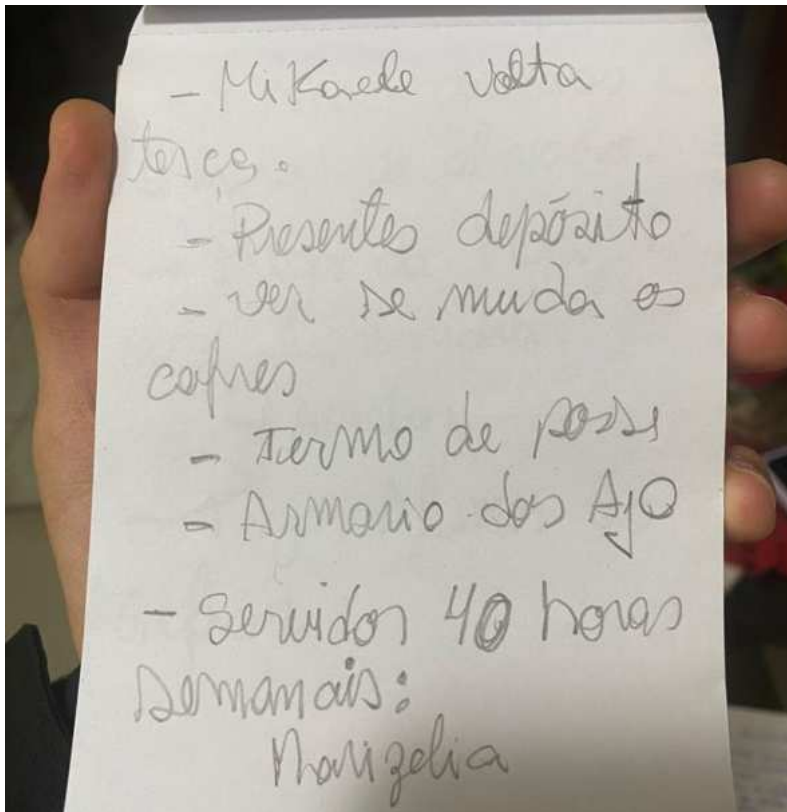 - Mikaele volta
terça.
- Presentes depósito
- ver se muda os
cofres
- Termo de posse
- Armario dos AJO
- Servidor 40 horas
semanais:
Marizelia